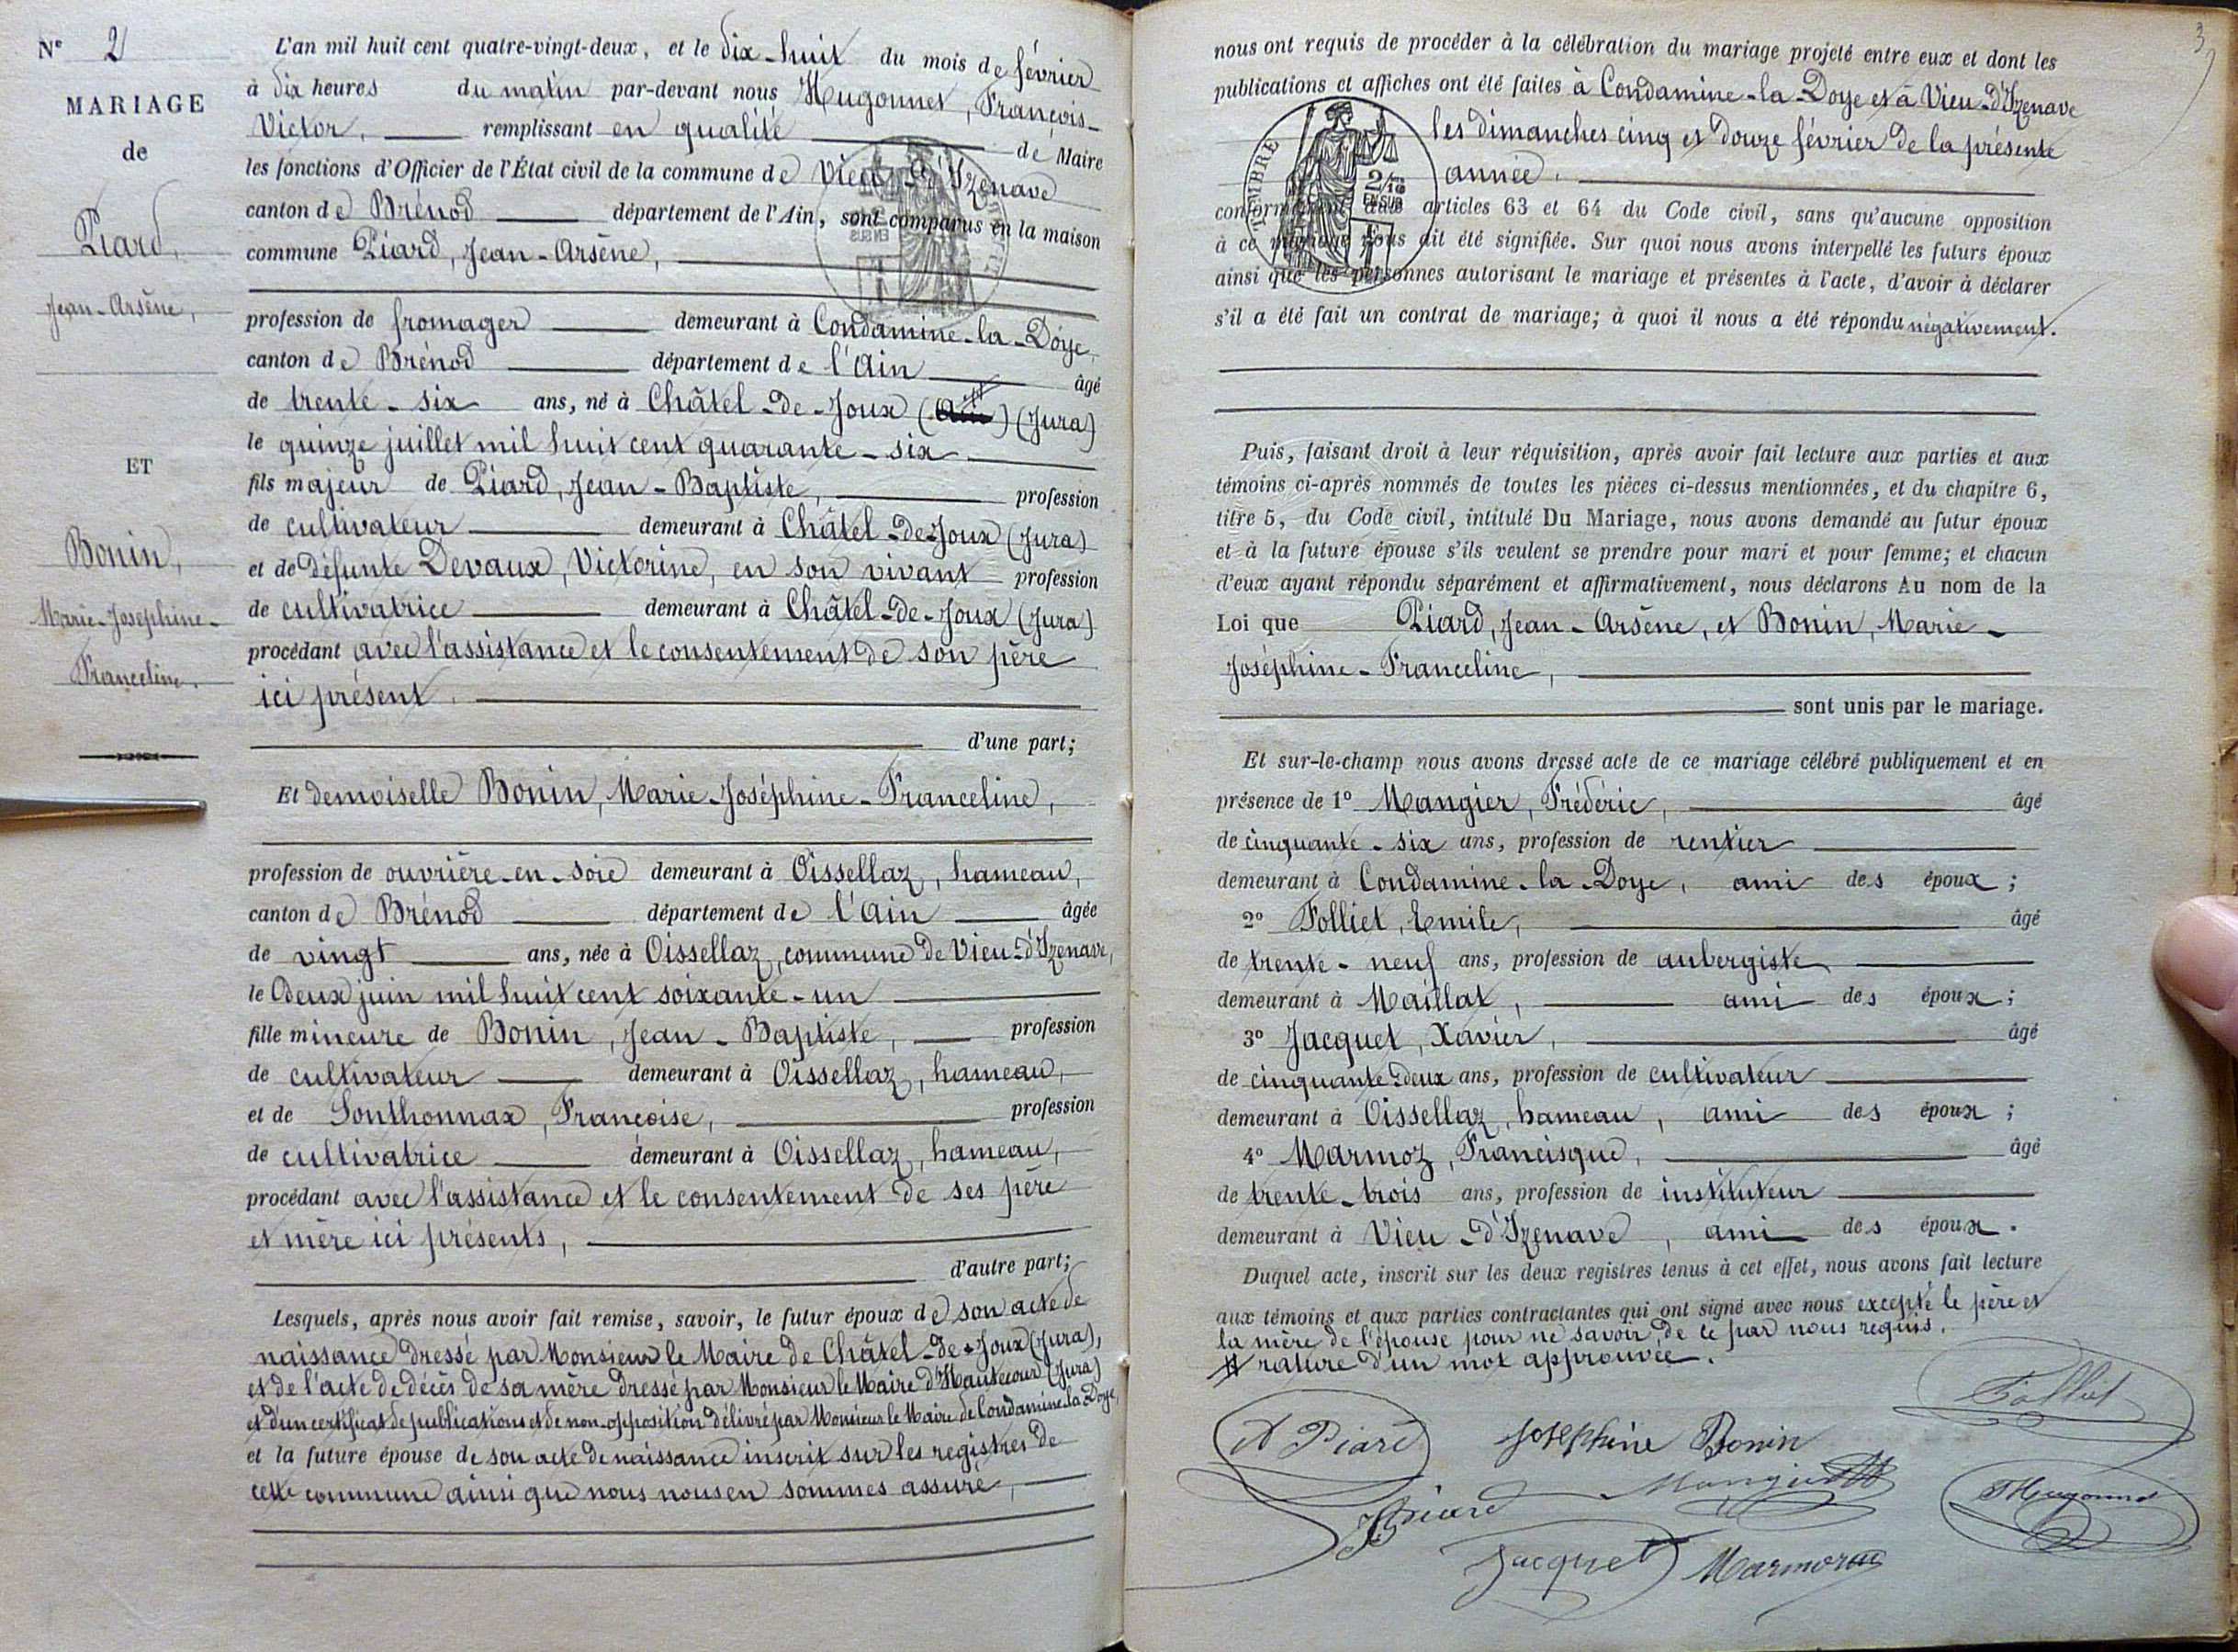 N° 2
MARIAGE
de
Piard,
Jean-Arsène,
ET
Bonin,
Marie-Joséphine-
Franceline.
L'an mil huit cent quatre-vingt-deux, et le dix-huit du mois de février
à dix heures du matin par-devant nous Hugonnet, François-
Victor, remplissant en qualité de Maire
les fonctions d'Officier de l'État civil de la commune de Vieu-d'Izenave
canton de Brénod département de l'Ain, sont comparus en la maison
commune Piard, Jean-Arsène,
profession de fromager demeurant à Condamine-la-Doye,
canton de Brénod département de l'Ain âgé
de trente-six ans, né à Châtel-de-Joux (Ain) (Jura)
le quinze juillet mil huit cent quarante-six
fils majeur de Piard, Jean-Baptiste, profession
de cultivateur demeurant à Châtel-de-Joux (Jura)
et de défunte Devaux, Victorine, en son vivant profession
de cultivatrice demeurant à Châtel-de-Joux (Jura)
procédant avec l'assistance et le consentement de son père
ici présent.
d'une part;
Et demoiselle Bonin, Marie-Joséphine-Franceline,
profession de ouvrière-en-soie demeurant à Oissellaz, hameau,
canton de Brénod département de l'Ain âgée
de vingt ans, née à Oissellaz, commune de Vieu-d'Izenave,
le deux juin mil huit cent soixante-un
fille mineure de Bonin, Jean-Baptiste, profession
de cultivateur demeurant à Oissellaz, hameau,
et de Sonthonnax, Françoise, profession
de cultivatrice demeurant à Oissellaz, hameau,
procédant avec l'assistance et le consentement de ses père
et mère ici présents,
d'autre part;
Lesquels, après nous avoir fait remise, savoir, le futur époux de son acte de
naissance dressé par Monsieur le Maire de Châtel-de-Joux (Jura),
et de l'acte de décès de sa mère dressé par Monsieur le Maire d'Hautecour (Jura)
et d'un certificat de publications et de non-opposition délivré par Monsieur le Maire de Condamine-la-Doye,
et la future épouse de son acte de naissance inscrit sur les registres de
cette commune ainsi que nous nous en sommes assuré,
3
nous ont requis de procéder à la célébration du mariage projeté entre eux et dont les
publications et affiches ont été faites à Condamine-la-Doye et à Vieu-d'Izenave
les dimanches cinq et douze février de la présente
année.
TIMBRE
2/10
EN SUS
conformément aux articles 63 et 64 du Code civil, sans qu'aucune opposition
à ce mariage nous ait été signifiée. Sur quoi nous avons interpellé les futurs époux
ainsi que les personnes autorisant le mariage et présentes à l'acte, d'avoir à déclarer
s'il a été fait un contrat de mariage; à quoi il nous a été répondu négativement.
Puis, faisant droit à leur réquisition, après avoir fait lecture aux parties et aux
témoins ci-après nommés de toutes les pièces ci-dessus mentionnées, et du chapitre 6,
titre 5, du Code civil, intitulé Du Mariage, nous avons demandé au futur époux
et à la future épouse s'ils veulent se prendre pour mari et pour femme; et chacun
d'eux ayant répondu séparément et affirmativement, nous déclarons Au nom de la
Loi que Piard, Jean-Arsène, et Bonin, Marie-
Joséphine-Franceline,
sont unis par le mariage.
Et sur-le-champ nous avons dressé acte de ce mariage célébré publiquement et en
présence de 1° Mangier, Frédéric, âgé
de cinquante-six ans, profession de rentier
demeurant à Condamine-la-Doye, ami des époux;
2° Folliet, Emile, âgé
de trente-neuf ans, profession de aubergiste
demeurant à Maillat, ami des époux;
3° Jacquet, Xavier, âgé
de cinquante-deux ans, profession de cultivateur
demeurant à Oissellaz, hameau, ami des époux;
4° Marmoz, Francisque, âgé
de trente-trois ans, profession de instituteur
demeurant à Vieu-d'Izenave, ami des époux.
Duquel acte, inscrit sur les deux registres tenus à cet effet, nous avons fait lecture
aux témoins et aux parties contractantes qui ont signé avec nous excepté le père et
la mère de l'épouse pour ne savoir, de ce par nous requis.
# rature d'un mot approuvée.
Folliet
A Piard Joséphine Bonin
Mangier
Hugonnet
Piard
Jacquet Marmoz